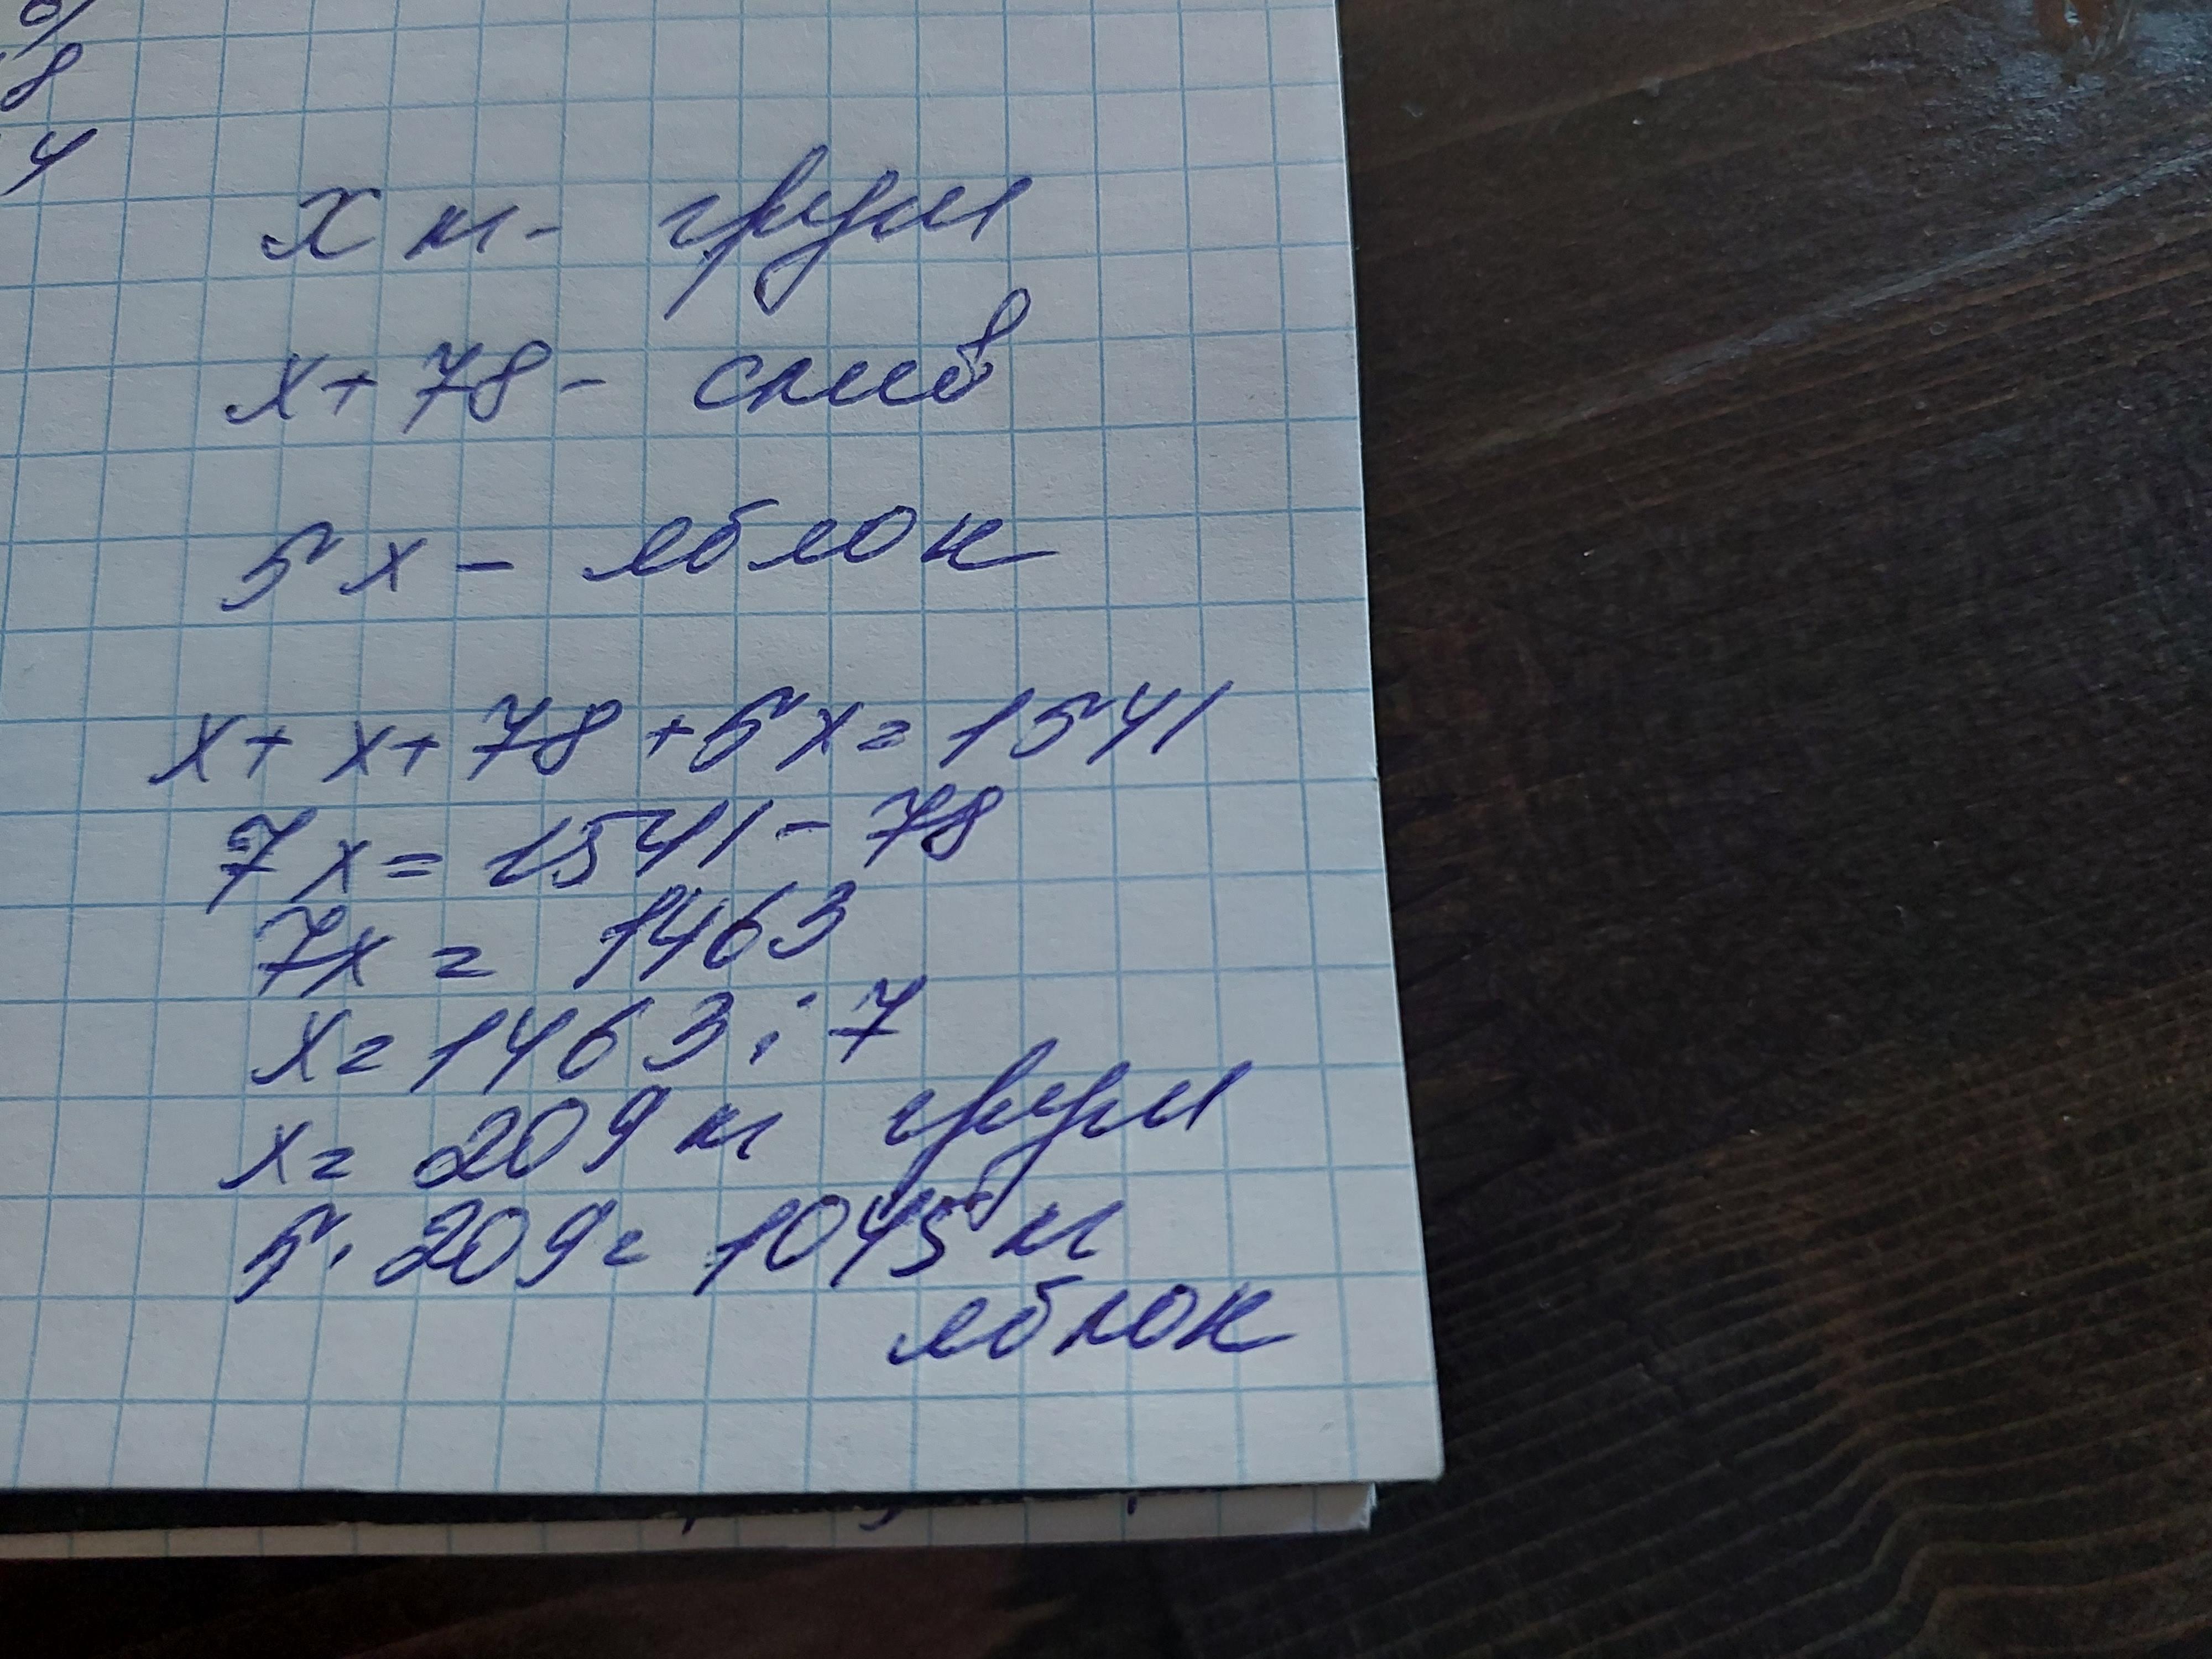 8
4
x кг - груш
x + 78 - слив
5x - яблок
x + x + 78 + 5x = 1541
7x = 1541 - 78
7x = 1463
x = 1463 : 7
x = 209 кг груш
5 · 209 = 1045 кг
яблок